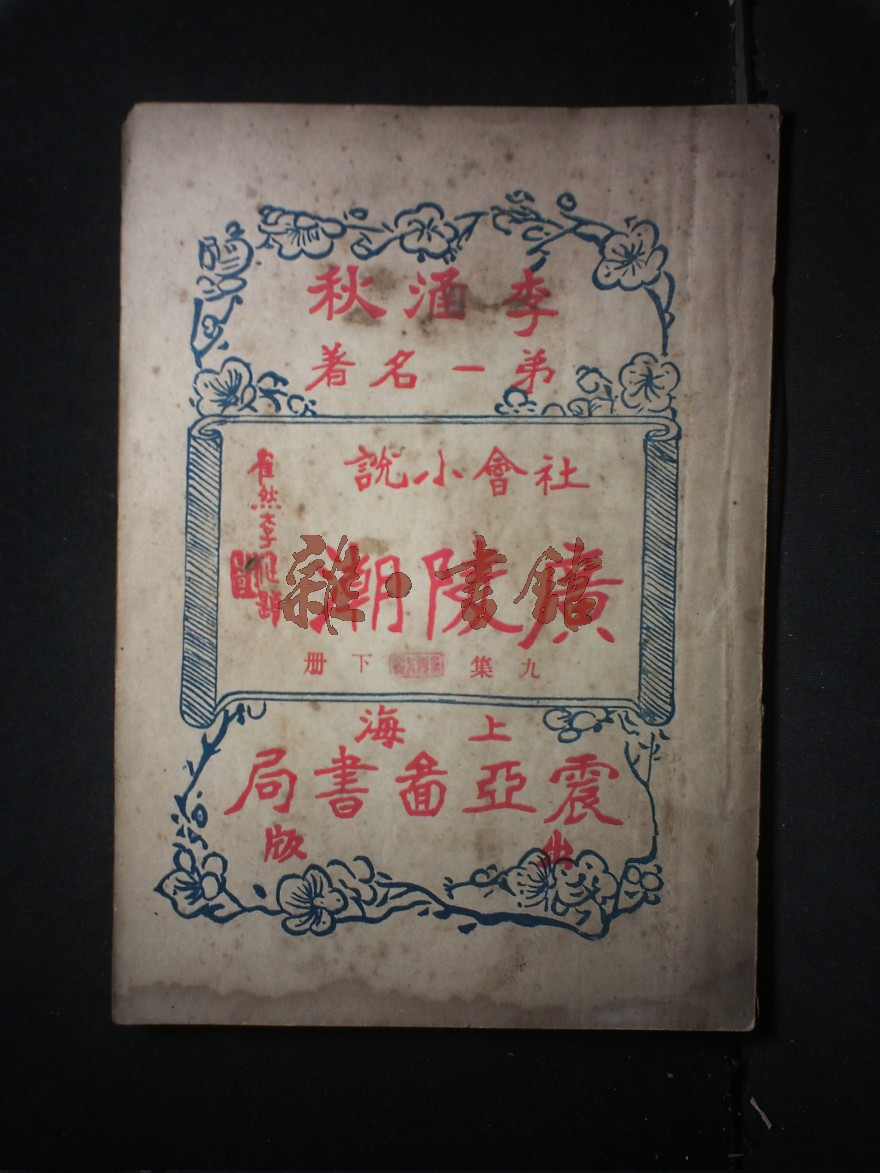 李涵秋
弟一名著
社會小說
廣陵潮
九集 下册
上海
震亞啚書局
出版